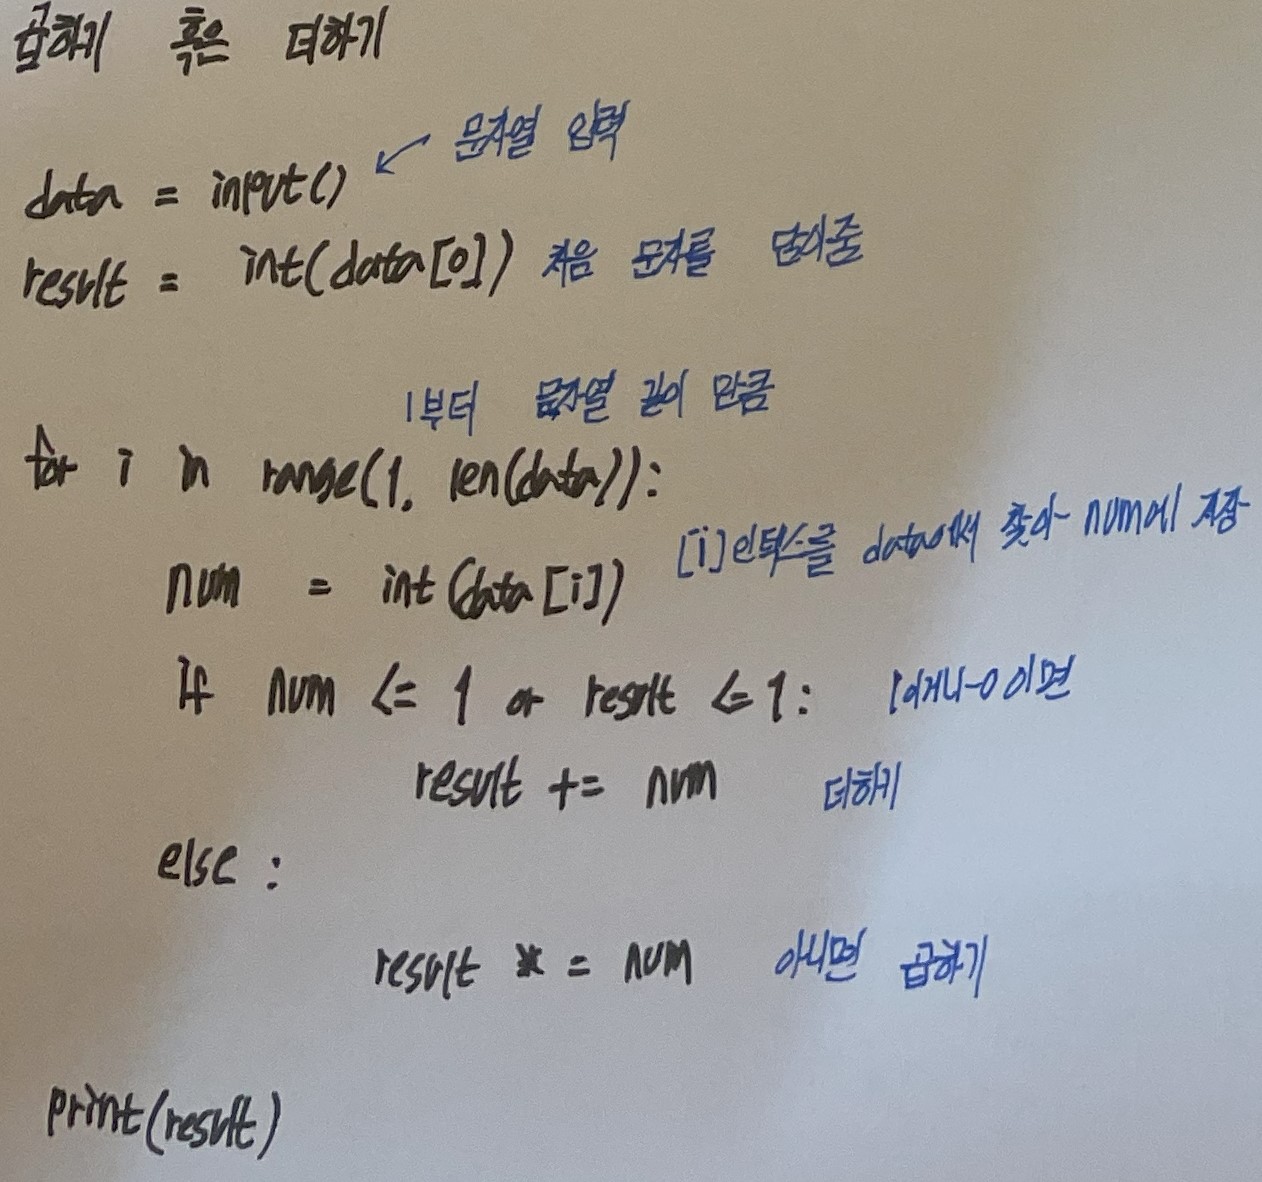 곱하기 혹은 더하기
문자열 입력
data = input()
result = int(data[0]) 처음 문자를 담아줌
1부터 문자열 길이 만큼
for i in range(1, len(data)):
num = int(data[i]) [i]인덱스를 data에서 찾아 num에 저장
if num <= 1 or result <= 1: 1이거나 0이면
result += num 더하기
else :
result *= num 아니면 곱하기
print(result)